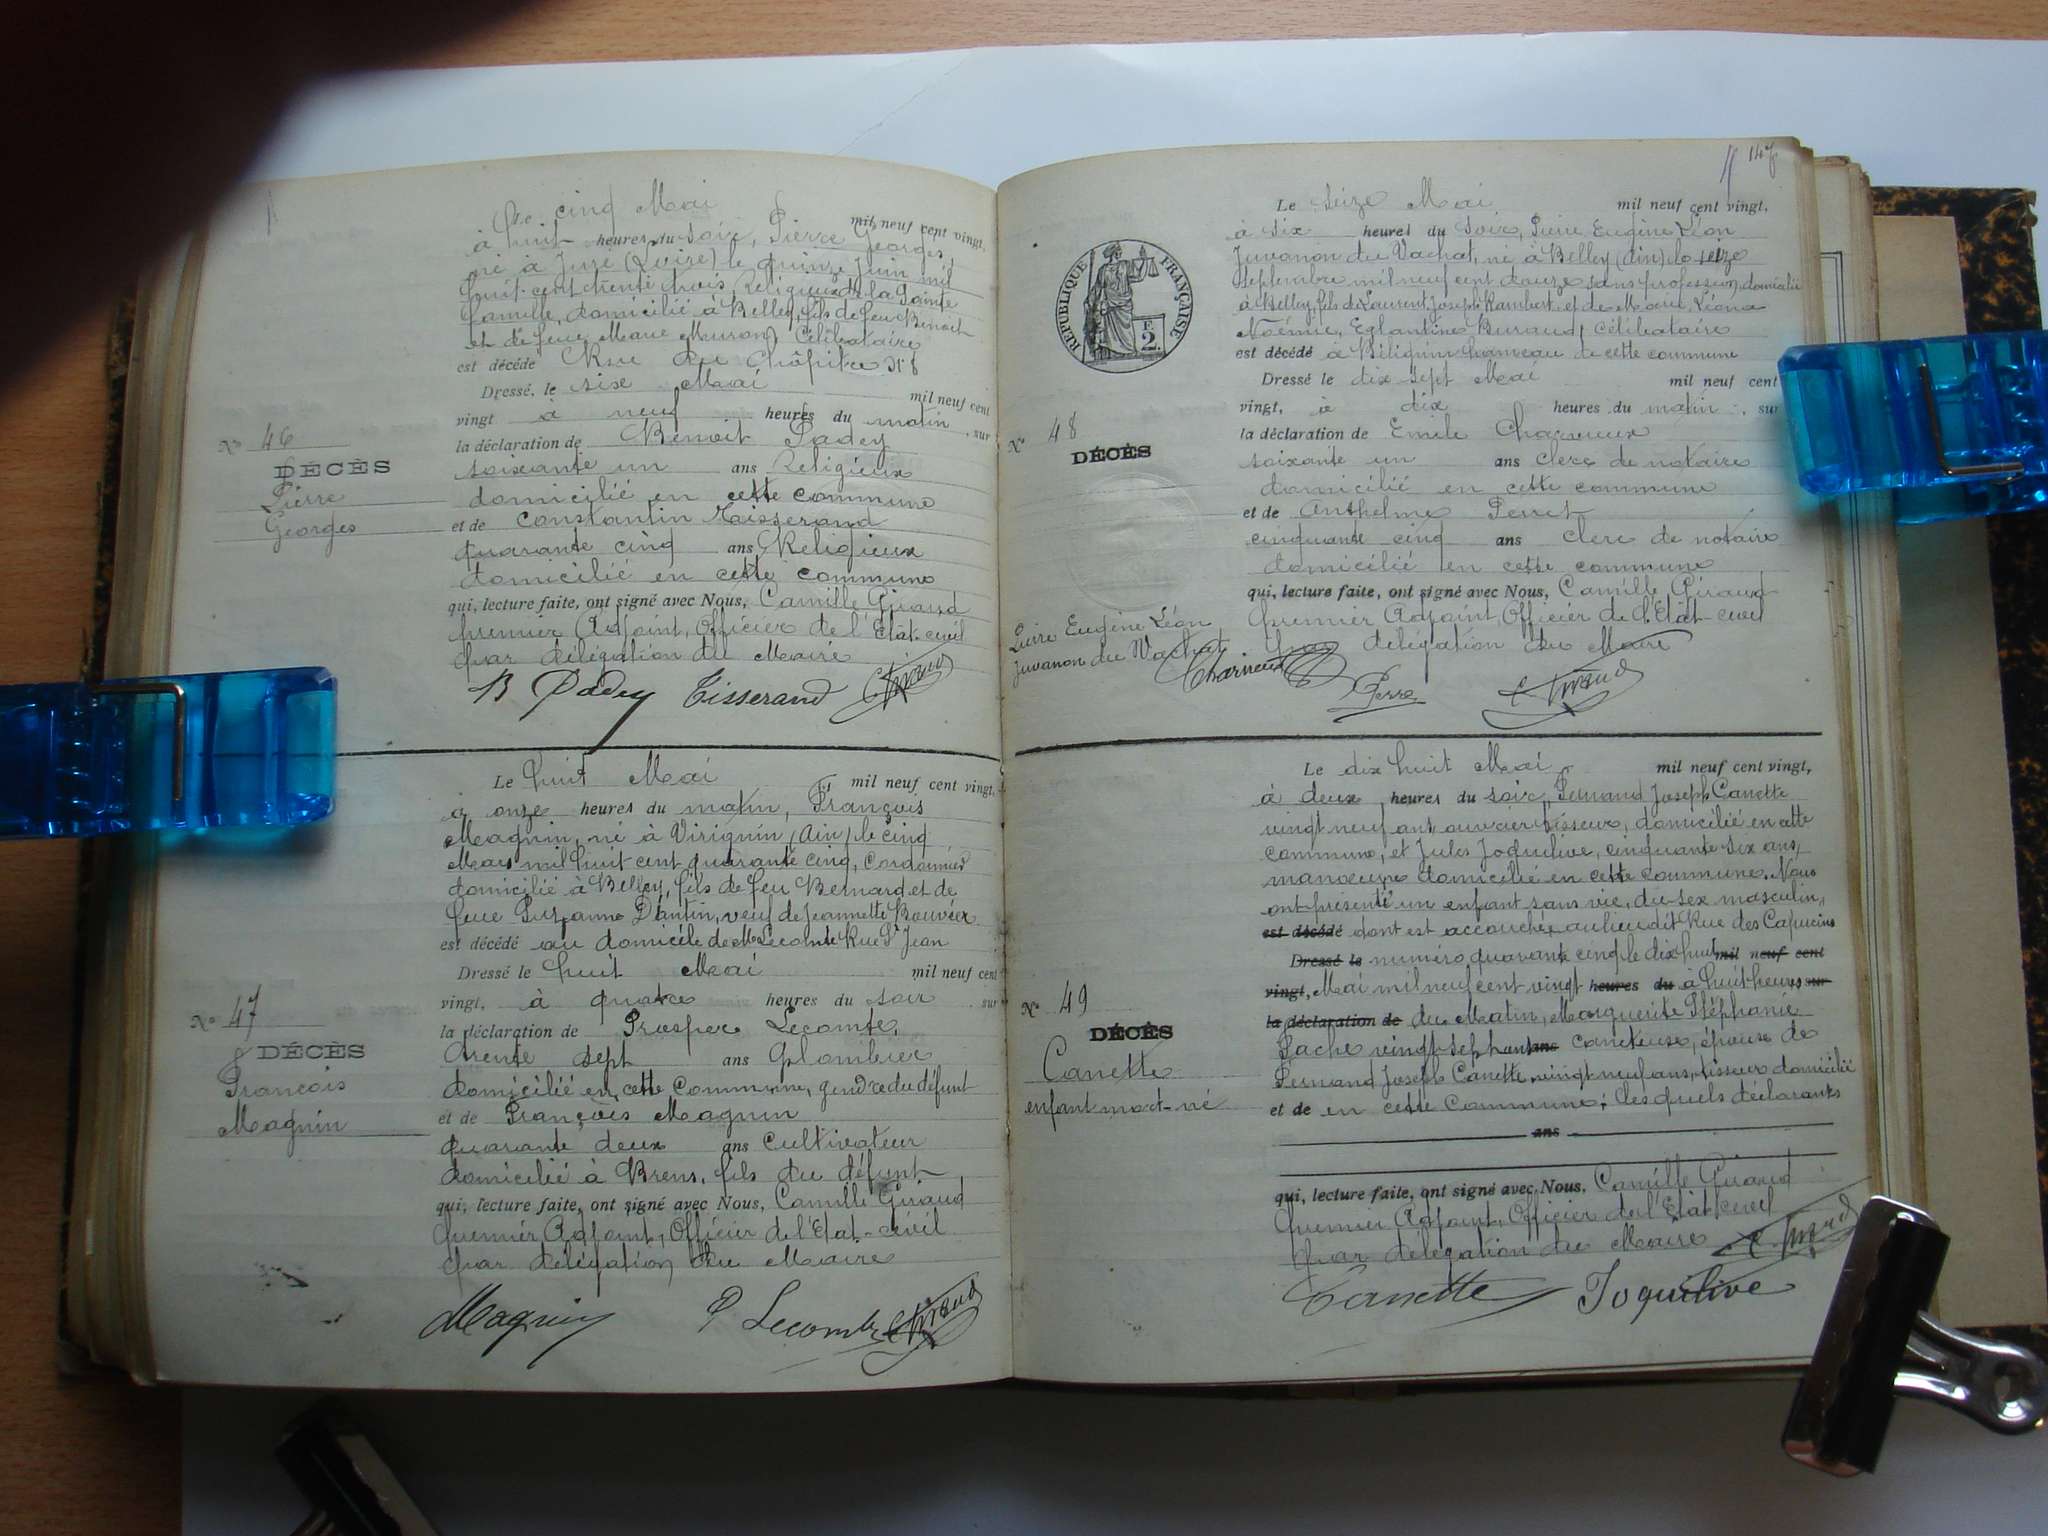 Le cinq Mai mil neuf cent vingt,
à huit heures du soir, Pierre Georges,
né à Jure (Loire) le quinze Juin mil
huit cent trente trois, Religieux de la Sainte
famille, domicilié à Belley, fils de feu Benoit
et de feue Marie Muron, Célibataire
est décédé Rue du Chapitre N° 8
Dressé, le six Mai mil neuf cent
vingt à neuf heures du matin, sur
la déclaration de Benoit Padey
soixante un ans Religieux
domicilié en cette commune
et de Constantin Tisserand
quarante cinq ans Religieux
domicilié en cette commune
qui, lecture faite, ont signé avec Nous, Camille Giraud
premier Adjoint, Officier de l'Etat-civil
par délégation du Maire
N° 46
DÉCÈS
Pierre
Georges
B Padey Tisserand C. Giraud
Le huit Mai mil neuf cent vingt,
à onze heures du matin, François
Magnin, né à Virignin (Ain) le cinq
Mars mil huit cent quarante cinq, Cordonnier
domicilié à Belley, fils de feu Bernard et de
feue Suzanne Dantin, veuf de Jeannette Bouvier
est décédé au domicile de Mr Lecomte Rue St Jean
Dressé le huit Mai mil neuf cent
vingt, à quatre heures du soir sur
la déclaration de Prosper Lecomte,
trente sept ans Plombier
domicilié en cette Commune, gendre du défunt
et de François Magnin
quarante deux ans Cultivateur
domicilié à Brens, fils du défunt
qui, lecture faite, ont signé avec Nous, Camille Giraud
premier Adjoint, Officier de l'Etat-civil
par délégation du Maire
N° 47
DÉCÈS
François
Magnin
Magnin P Lecomte C. Giraud
147
Le seize Mai mil neuf cent vingt,
à six heures du soir, Pierre Eugène Léon
Juvanon du Vachat, né à Belley (Ain) le seize
septembre mil neuf cent douze sans profession, domicilié
à Belley, fils de Laurent Joseph Rambert et de Marie, Léona
Noémie, Eglantine Buraud, Célibataire
est décédé à Billignin hameau de cette commune
Dressé le dix sept Mai mil neuf cent
vingt, à dix heures du matin, sur
la déclaration de Emile Charveux
soixante un ans clerc de notaire
domicilié en cette commune
et de Anthelme Perret
cinquante cinq ans clerc de notaire
domicilié en cette commune
qui, lecture faite, ont signé avec Nous, Camille Giraud
premier Adjoint, Officier de l'Etat civil
par délégation du Maire
RÉPUBLIQUE FRANÇAISE
F.
2.
N° 48
DÉCÈS
Pierre Eugène Léon
Juvanon du Vachat
C. Giraud
Le dix huit Mai mil neuf cent vingt,
à deux heures du soir, Fernand Joseph Canette
vingt neuf ans ouvrier tisseur, domicilié en cette
commune, et Jules Joquilive, cinquante six ans,
manoeuvre domicilié en cette commune. Nous
ont présenté un enfant sans vie, du sex masculin,
est décédé dont est accouchée au lieu dit Rue des Capucins
Dressé le numéro quarante cinq le dix huit mil neuf cent
vingt, Mai mil neuf cent vingt heures du à huit heures sur
la déclaration de du Matin, Marguerite Stéphanie
Pache vingt sept ans ans caneteuse, épouse de
Fernand Joseph Canette vingt neuf ans, tisseur domicilié
et de en cette Commune; lesquels déclarants
ans
qui, lecture faite, ont signé avec Nous, Camille Giraud
premier Adjoint, Officier de l'Etat civil
par délégation du Maire C. Giraud
N° 49
DÉCÈS
Canette
enfant mort-né
Canette Joquilive